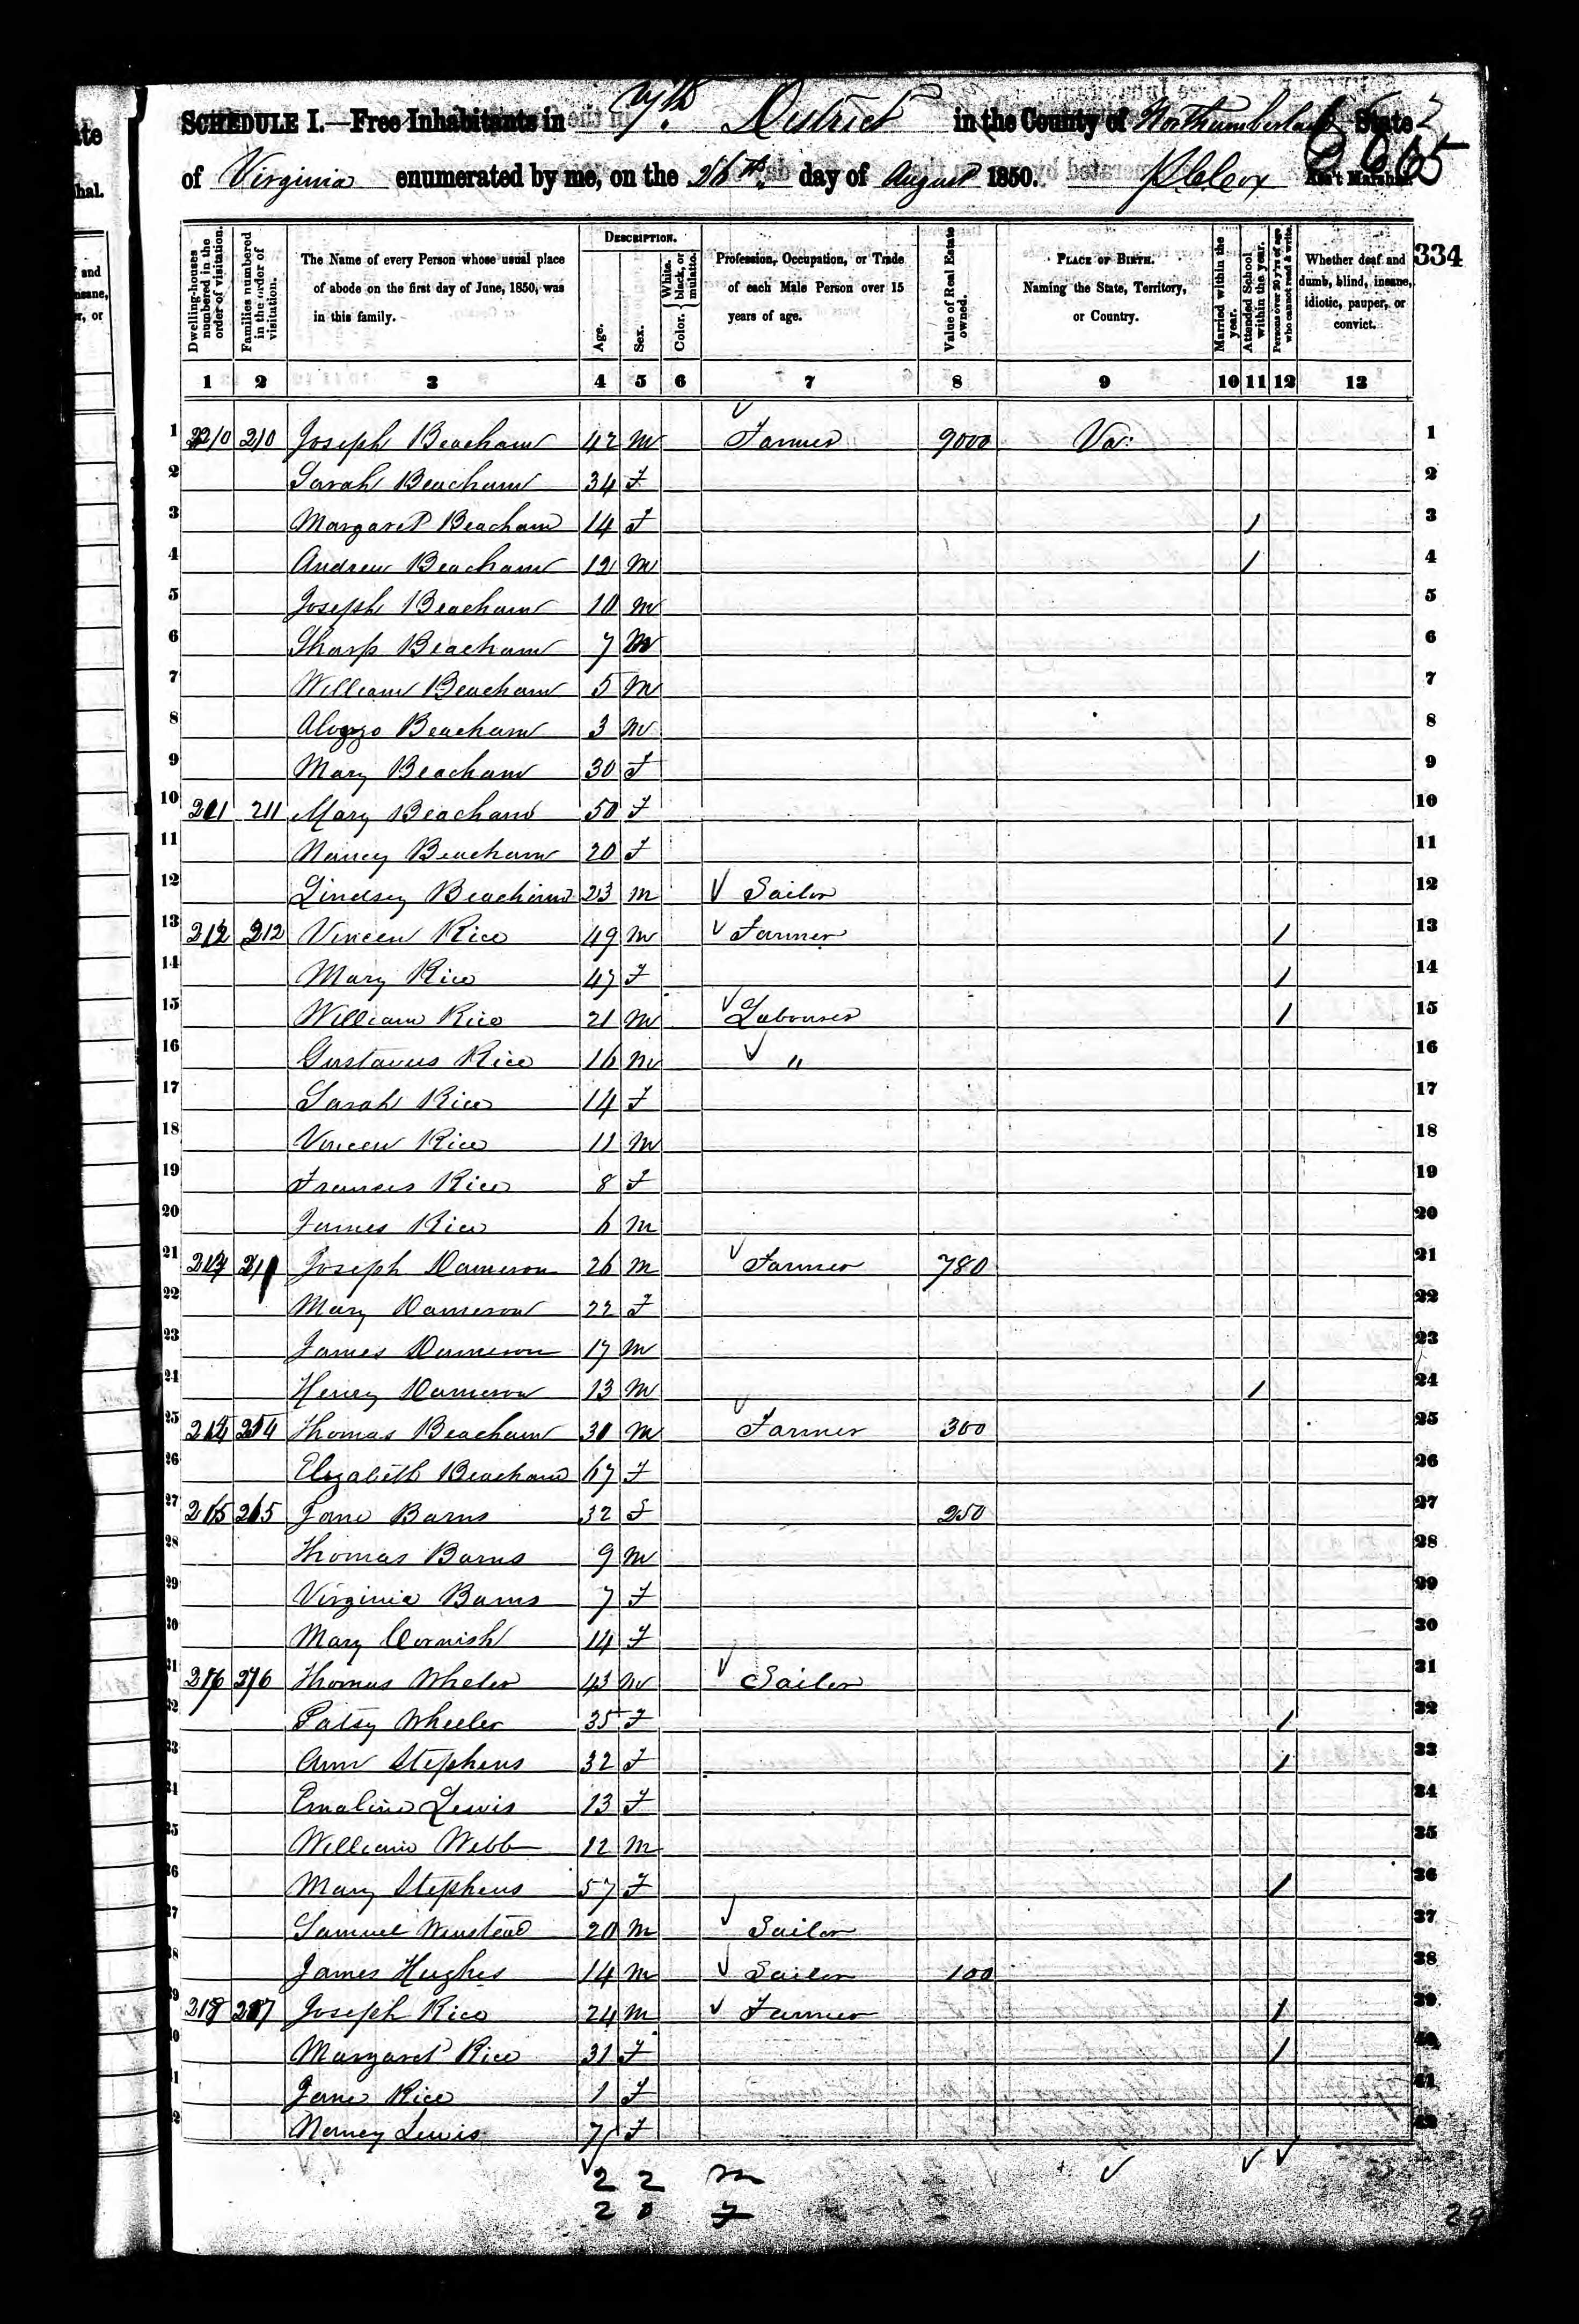 SCHEDULE I.—Free Inhabitants in 7th. District in the County of Northumberland State
of Virginia enumerated by me, on the 26th. day of August 1850. Ass't Marshal.
334
Dwelling-houses numbered in the order of visitation.
Families numbered in the order of visitation.
The Name of every Person whose usual place of abode on the first day of June, 1850, was in this family.
DESCRIPTION.
Age.
Sex.
Color. { White, black, or mulatto.
Profession, Occupation, or Trade of each Male Person over 15 years of age.
Value of Real Estate owned.
PLACE OF BIRTH. Naming the State, Territory, or Country.
Married within the year.
Attended School within the year.
Persons over 20 y'rs of age who cannot read & write.
Whether deaf and dumb, blind, insane, idiotic, pauper, or convict.
1 2 3 4 5 6 7 8 9 10 11 12 13
1 210 210 Joseph Beacham 42 M Farmer 9000 Va: 1
2 Sarah Beacham 34 F 2
3 Margaret Beacham 14 F / 3
4 Andrew Beacham 12 M / 4
5 Joseph Beacham 10 M 5
6 Tharp Beacham 7 M 6
7 William Beacham 5 M 7
8 Alonzo Beacham 3 M 8
9 Mary Beacham 30 F 9
10 211 211 Mary Beacham 50 F 10
11 Nancy Beacham 20 F 11
12 Lindsey Beacham 23 M Sailor 12
13 212 212 Vincen Rice 49 M Farmer / 13
14 Mary Rice 47 F / 14
15 William Rice 21 M Labourer / 15
16 Gustavus Rice 16 M " 16
17 Sarah Rice 14 F 17
18 Vincen Rice 11 M 18
19 Frances Rice 8 F 19
20 James Rice 6 M 20
21 213 Joseph Dameron 26 M Farmer 780 21
22 Mary Dameron 22 F 22
23 James Dameron 17 M 23
24 Henry Dameron 13 M / 24
25 214 214 Thomas Beacham 30 M Farmer 300 25
26 Elizabeth Beacham 67 F 26
27 215 215 Jane Barns 32 F 250 27
28 Thomas Barns 9 M 28
29 Virginia Barns 7 F 29
30 Mary Cornish 14 F 30
31 216 216 Thomas Wheler 43 M Sailor 31
32 Patsy Wheeler 35 F / 32
33 Ann Stephens 32 F / 33
34 Emaline Lewis 13 F 34
35 William Webb 12 M 35
36 Mary Stephens 57 F / 36
37 Samuel Winstead 20 M Sailor 37
38 James Hughes 14 M Sailor 100 38
39 218 217 Joseph Rice 24 M Farmer / 39
40 Margaret Rice 31 F / 40
41 Jane Rice 1 F 41
42 Nancy Lewis 7 F 42
22 M
20 F